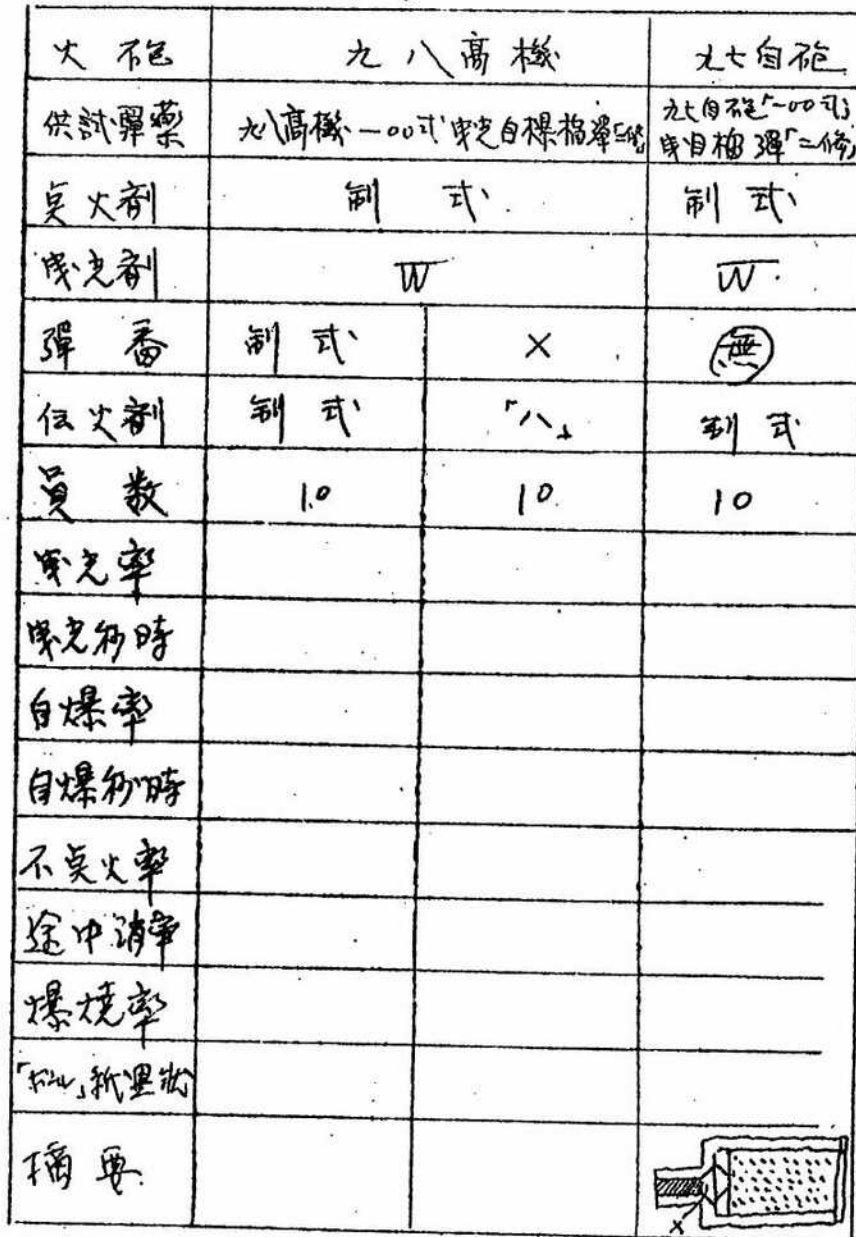 火砲 九八高機 九七自砲
供試彈藥 九八高機一〇〇式曳光自爆榴彈「二修」 九七自砲「一〇〇式」
曳自榴彈「二修」
点火剤 制式 制式
曳光剤 W W
彈番 制式 × 無
伝火剤 制式 「ハ」 制式
員数 10 10 10
曳光率
曳光秒時
自爆率
自爆秒時
不点火率
途中消率
爆焼率
「ボール」紙
摘要
×